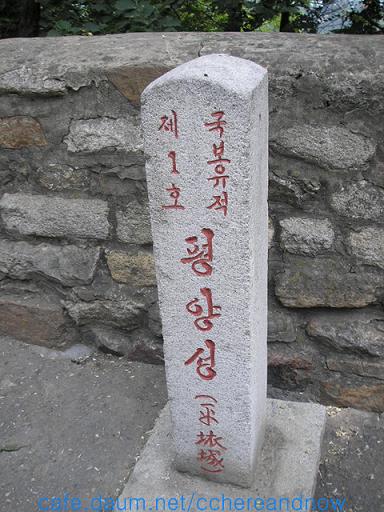 국보유적
제1호
평양성
(平壤城)
cafe.daum.net/cchereandnow